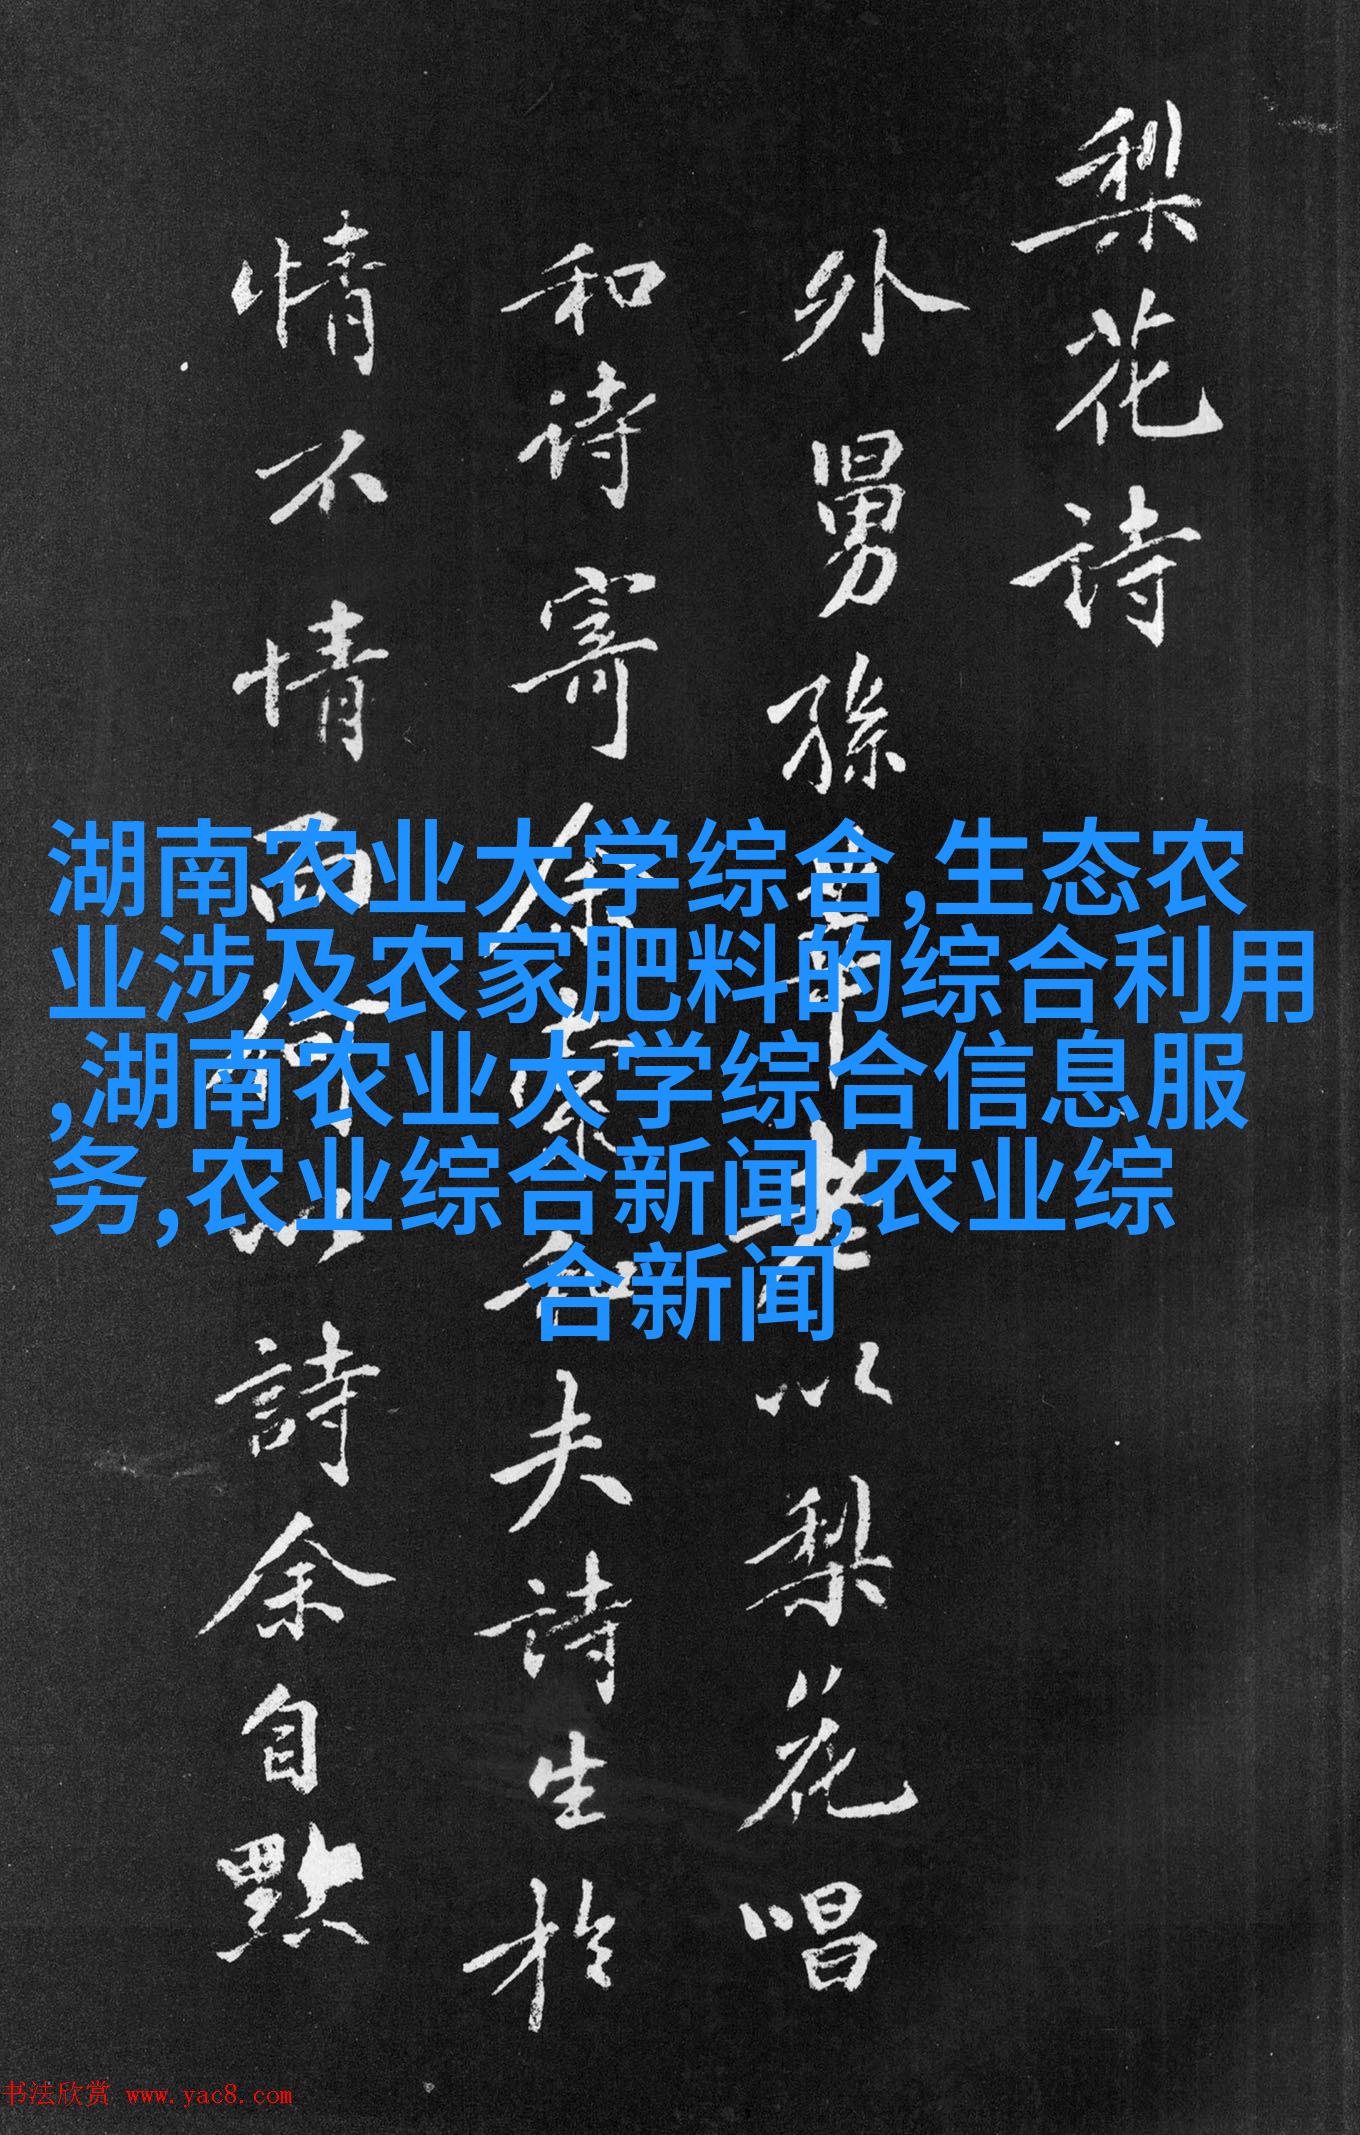 梨花詩
外舅孫莘老以梨花唱
和诗寄余索和夫詩生於
情不情而何以詩余自點
湖南农业大学综合,生态农
业涉及农家肥料的综合利用
,湖南农业大学综合信息服
务,农业综合新闻,农业综
合新闻
书法欣赏 www.yac8.com